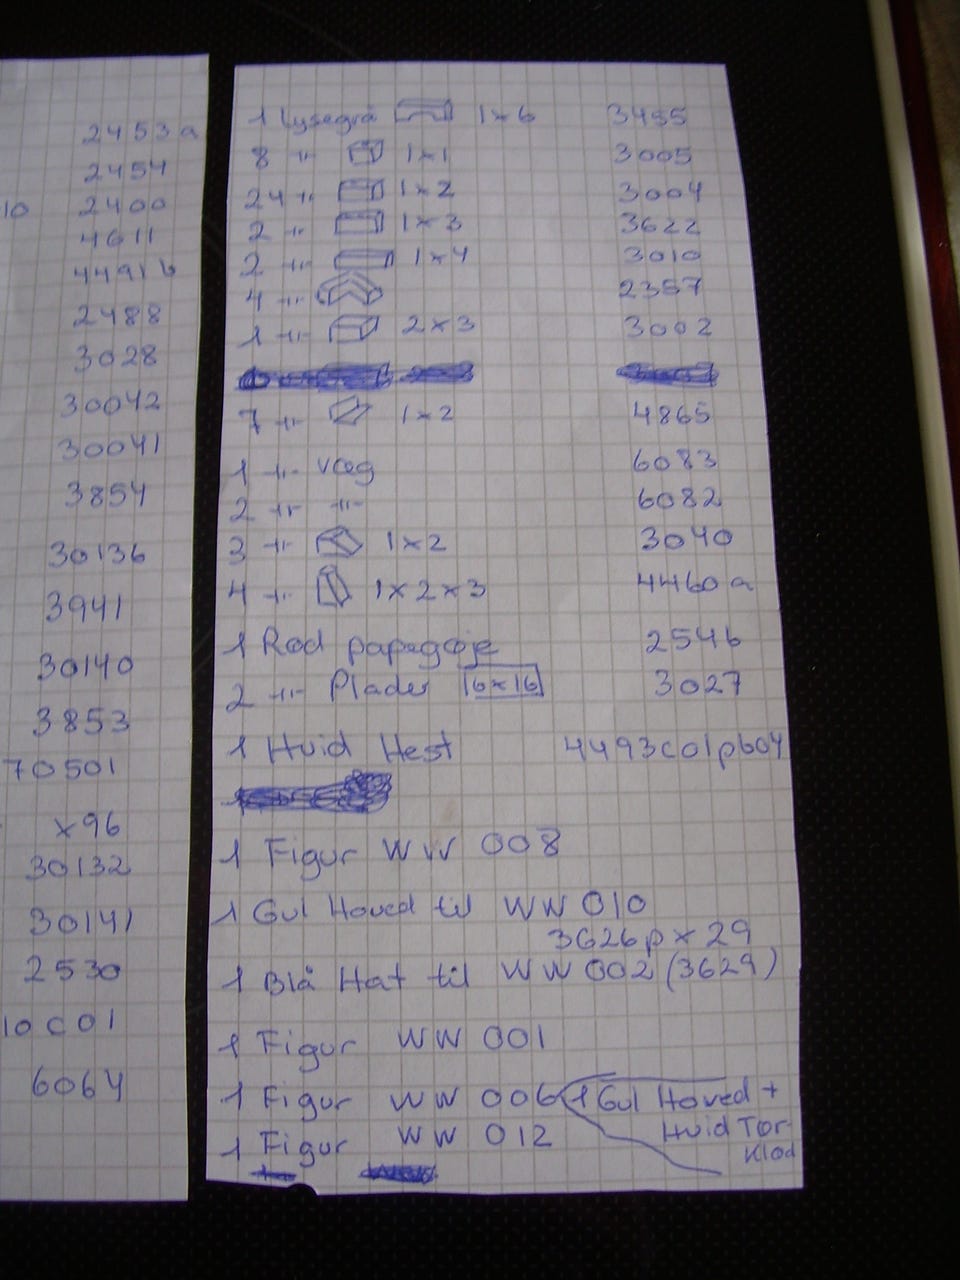 2453a
2454
10 2400
4611
4491b
2488
3028
30042
30041
3854
30136
3941
30140
3853
70501
x96
30132
30141
2530
10c01
6064
1 Lysegrå 1x6 3455
8 -"- 1x1 3005
24 -"- 1x2 3004
2 -"- 1x3 3622
2 -"- 1x4 3010
4 -"- 2357
1 -"- 2x3 3002
7 -"- 1x2 4865
1 -"- væg 6083
2 -"- -"- 6082
3 -"- 1x2 3040
4 -"- 1x2x3 4460a
1 Rød papegøje 2546
2 -"- Plader 16x16 3027
1 Hvid Hest 4493c01pb04
1 Figur WW 008
1 Gul Hoved til WW 010
3626px29
1 Blå Hat til WW 002 (3629)
1 Figur WW 001
1 Figur WW 006 1 Gul Hoved +
Hvid Tør-
klæd
1 Figur WW 012